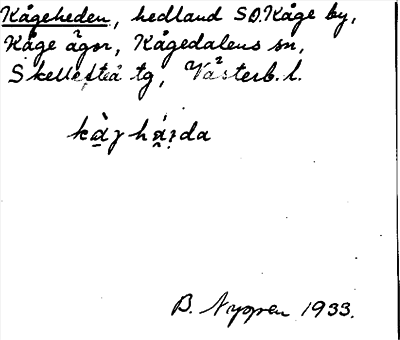 Kågeheden, hedland SO.Kåge by,
Kåge ägor, Kågedalens sn,
Skellefteå tg, Västerb. l.
B. Nygren 1933.